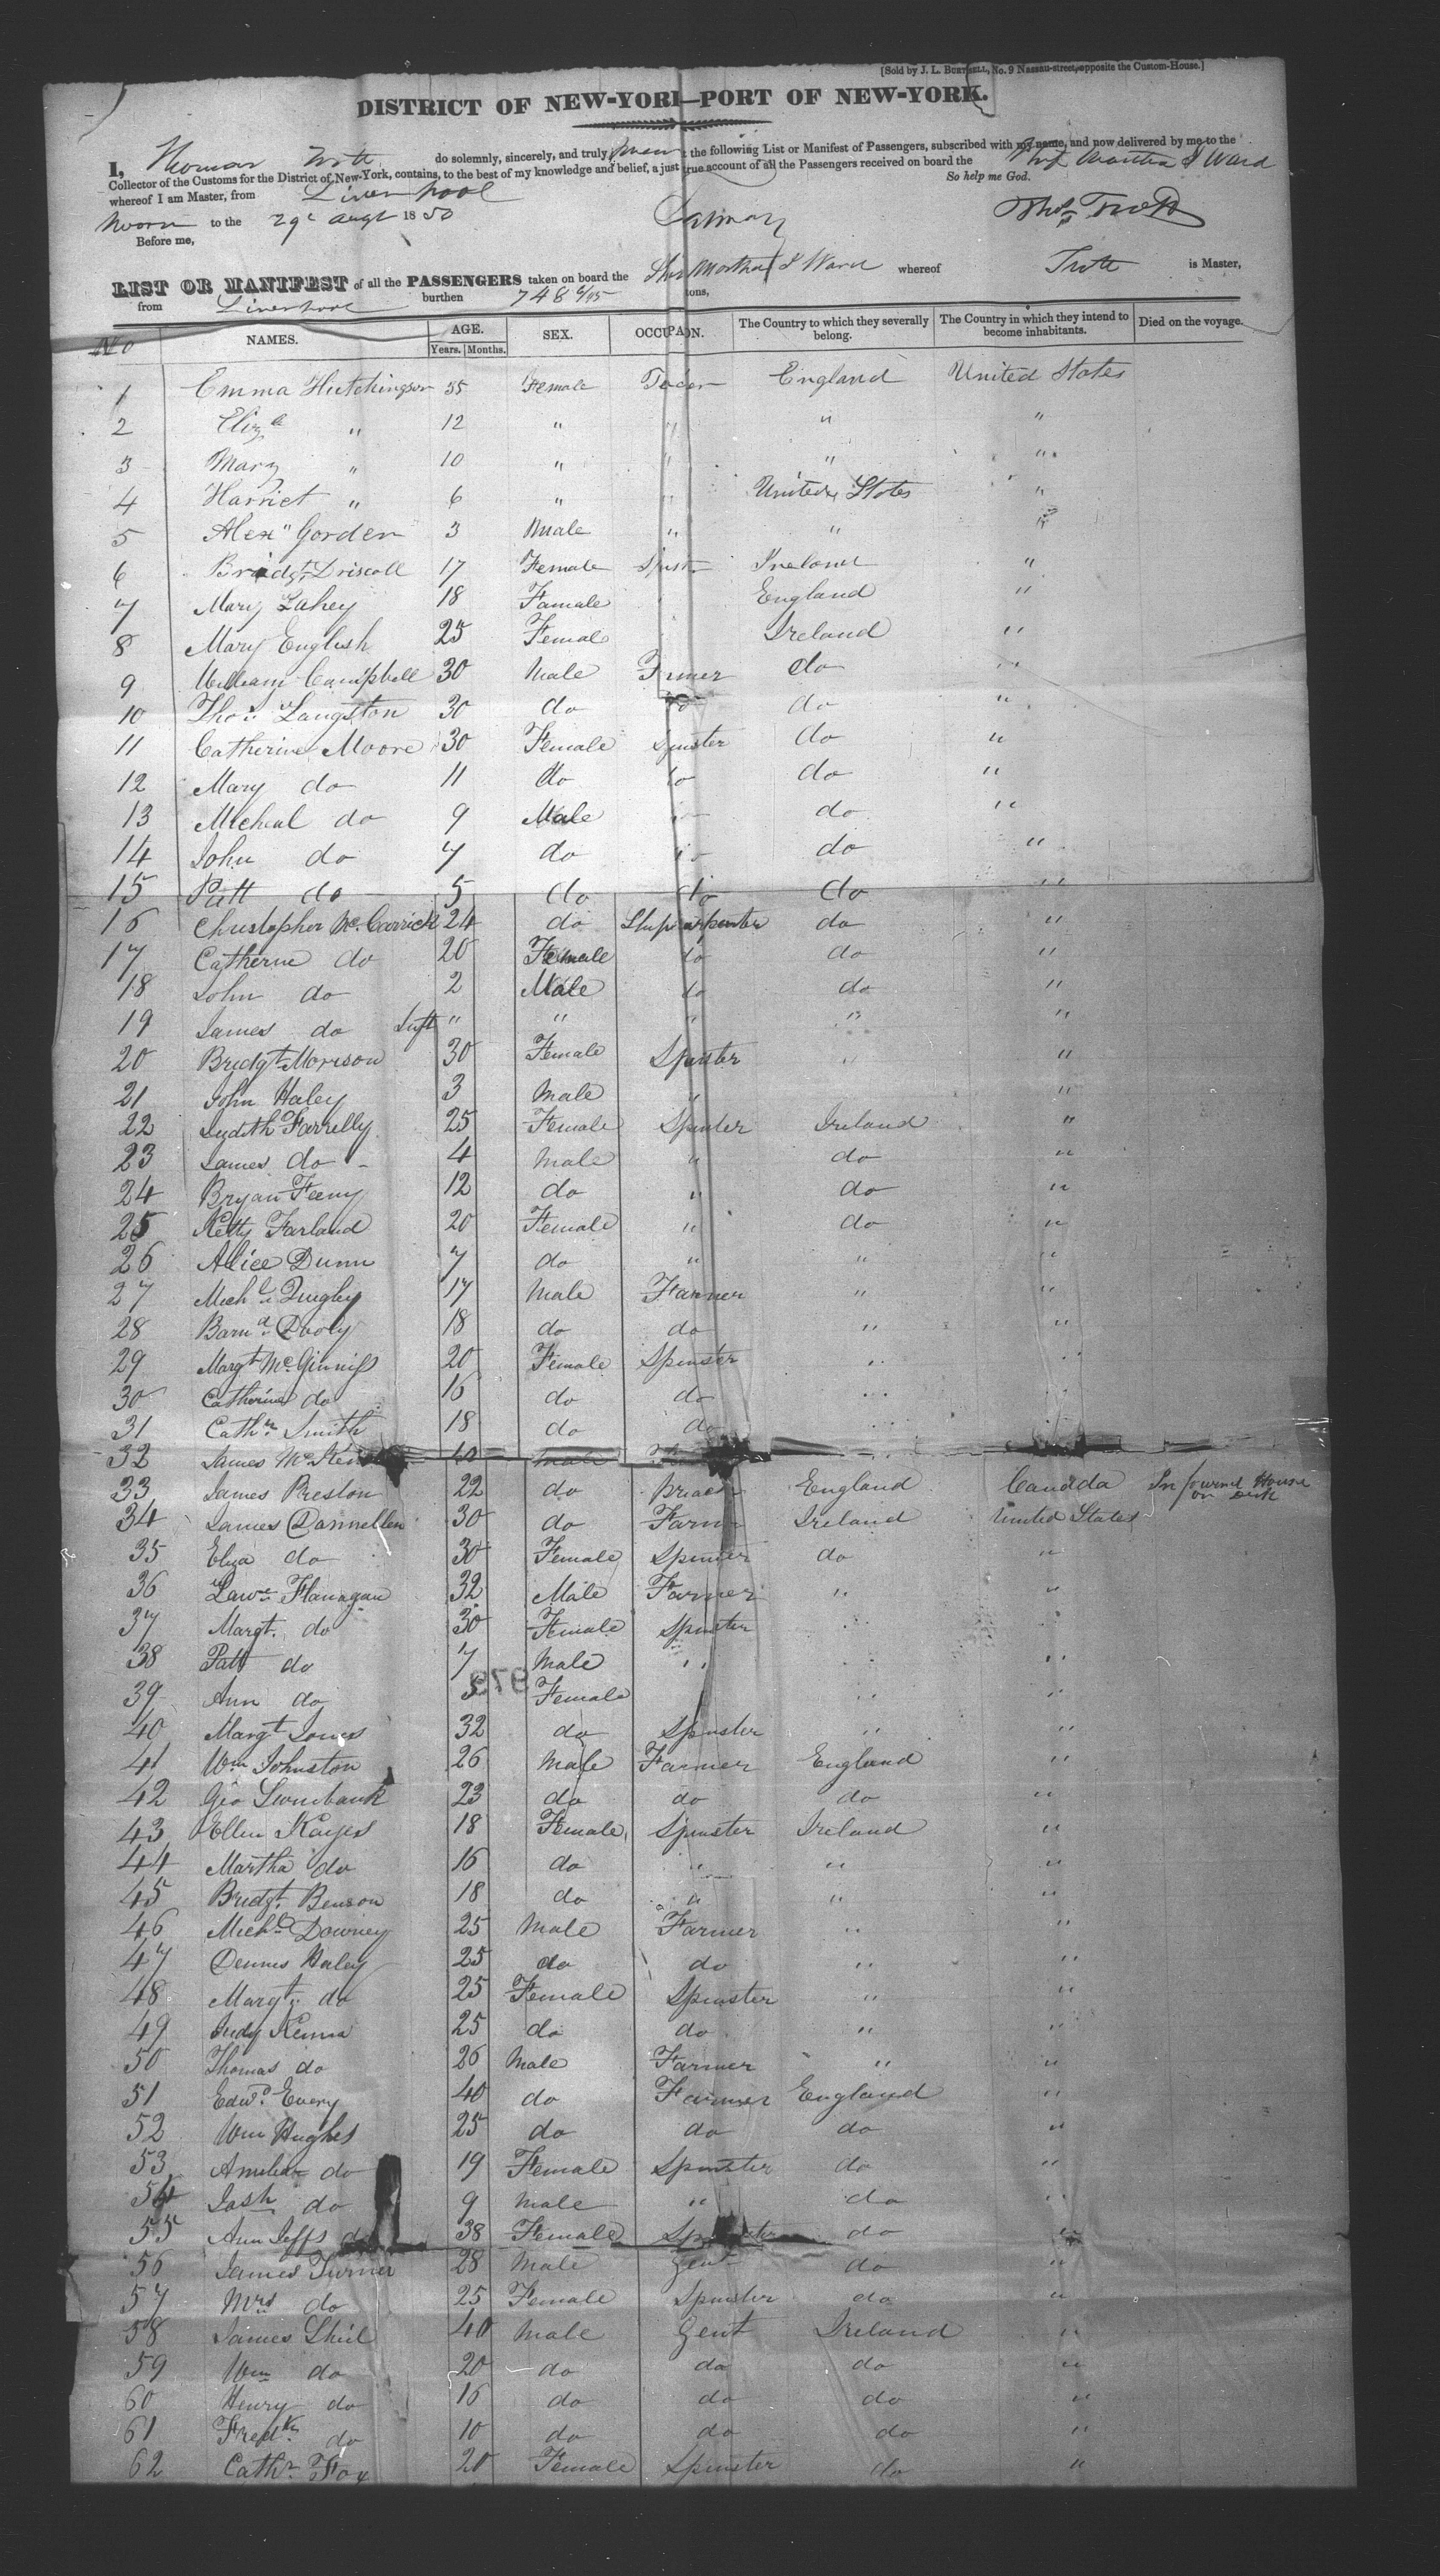 [Sold by J. L. BURTSELL, No. 9 Nassau-street, opposite the Custom-House.]
DISTRICT OF NEW-YORK—PORT OF NEW-YORK.
I, Thomas Trott do solemnly, sincerely, and truly the following List or Manifest of Passengers, subscribed with my name, and now delivered by me to the
Collector of the Customs for the District of New-York, contains, to the best of my knowledge and belief, a just true account of all the Passengers received on board the Ship Martha J Ward
whereof I am Master, from Liverpool So help me God.
to the 29 Augt 1850 Thos Trott
Before me,
LIST OR MANIFEST of all the PASSENGERS taken on board the Ship Martha J Ward whereof Trott is Master,
from Liverpool burthen 748 tons,
No NAMES. AGE. Years. Months. SEX. OCCUPA N. The Country to which they severally belong. The Country in which they intend to become inhabitants. Died on the voyage.
1 Emma Hutchingson 35 Female England United States
2 Eliza " 12 " " " "
3 Mary " 10 " " " "
4 Harriet " 6 " " United States "
5 Alex " Gorden 3 Male " " "
6 Bridgt Driscoll 17 Female Spinst Ireland "
7 Mary Lahey 18 Famale England "
8 Mary English 25 Female Ireland "
9 William Campbell 30 Male F mer do "
10 Thos Langston 30 do do do "
11 Catherine Moore 30 Female Spinster do "
12 Mary do 11 do do do "
13 Micheal do 9 Male do "
14 John do 7 do do "
15 Patt do 5 do do do "
16 Christopher Mc.Carrick 24 do Ship carpenter do "
17 Catherine do 20 Female do do "
18 John do 2 Male do do "
19 James do Inft " " " " "
20 Bridgt Morrison 30 Female Spinster " "
21 John Haley 3 Male " "
22 Judith Farrelly 25 Female Spinster Ireland "
23 James do 4 Male " do "
24 Bryan Feeny 12 do " do "
25 Ketty Farland 20 Female " do "
26 Alice Dunn 7 do " " "
27 Michl Quigley 17 Male Farmer " "
28 Barnd 18 do do " "
29 Margt Mc.Ginniss 20 Female Spinster " "
30 Catherine do 16 do do "
31 Cathn Smith 18 do do "
32 James Mc 40 Male
33 James Preston 22 do England Canada
34 James Dannellen 30 do Farmer Ireland United States
35 Eliza do 30 Female Spinster do "
36 Lawe Flanagan 32 Male Farmer " "
37 Margt. do 30 Female Spinster " "
38 Patt do 7 Male " " "
39 Ann do 5 Female " "
40 Margt Jones 32 do Spinster " "
41 Wm Johnston 26 Male Farmer England "
42 Geo Swinbank 23 do do do "
43 Ellen Kayes 18 Female Spinster Ireland "
44 Martha do 16 do " " "
45 Bridgt. Benson 18 do " " "
46 Michl Downey 25 Male Farmer " "
47 Dennis Haley 25 do do " "
48 Margt. do 25 Female Spinster " "
49 Judy Kenna 25 do do " "
50 Thomas do 26 Male Farmer " "
51 Edwd. Every 40 do Farmer England "
52 Wm Hughes 25 do do do "
53 Amelia do 19 Female Spinster do "
54 Josh do 9 Male " do "
55 Ann Jeffs do 38 Female Spinster do "
56 James Turner 28 Male Gent do "
57 Mrs do 25 Female Spinster do "
58 James Shiel 40 Male Gent Ireland "
59 Wm do 20 do do do "
60 Henry do 16 do do do "
61 Fredk. do 10 do do do "
62 Cathn Fox 20 Female Spinster do "